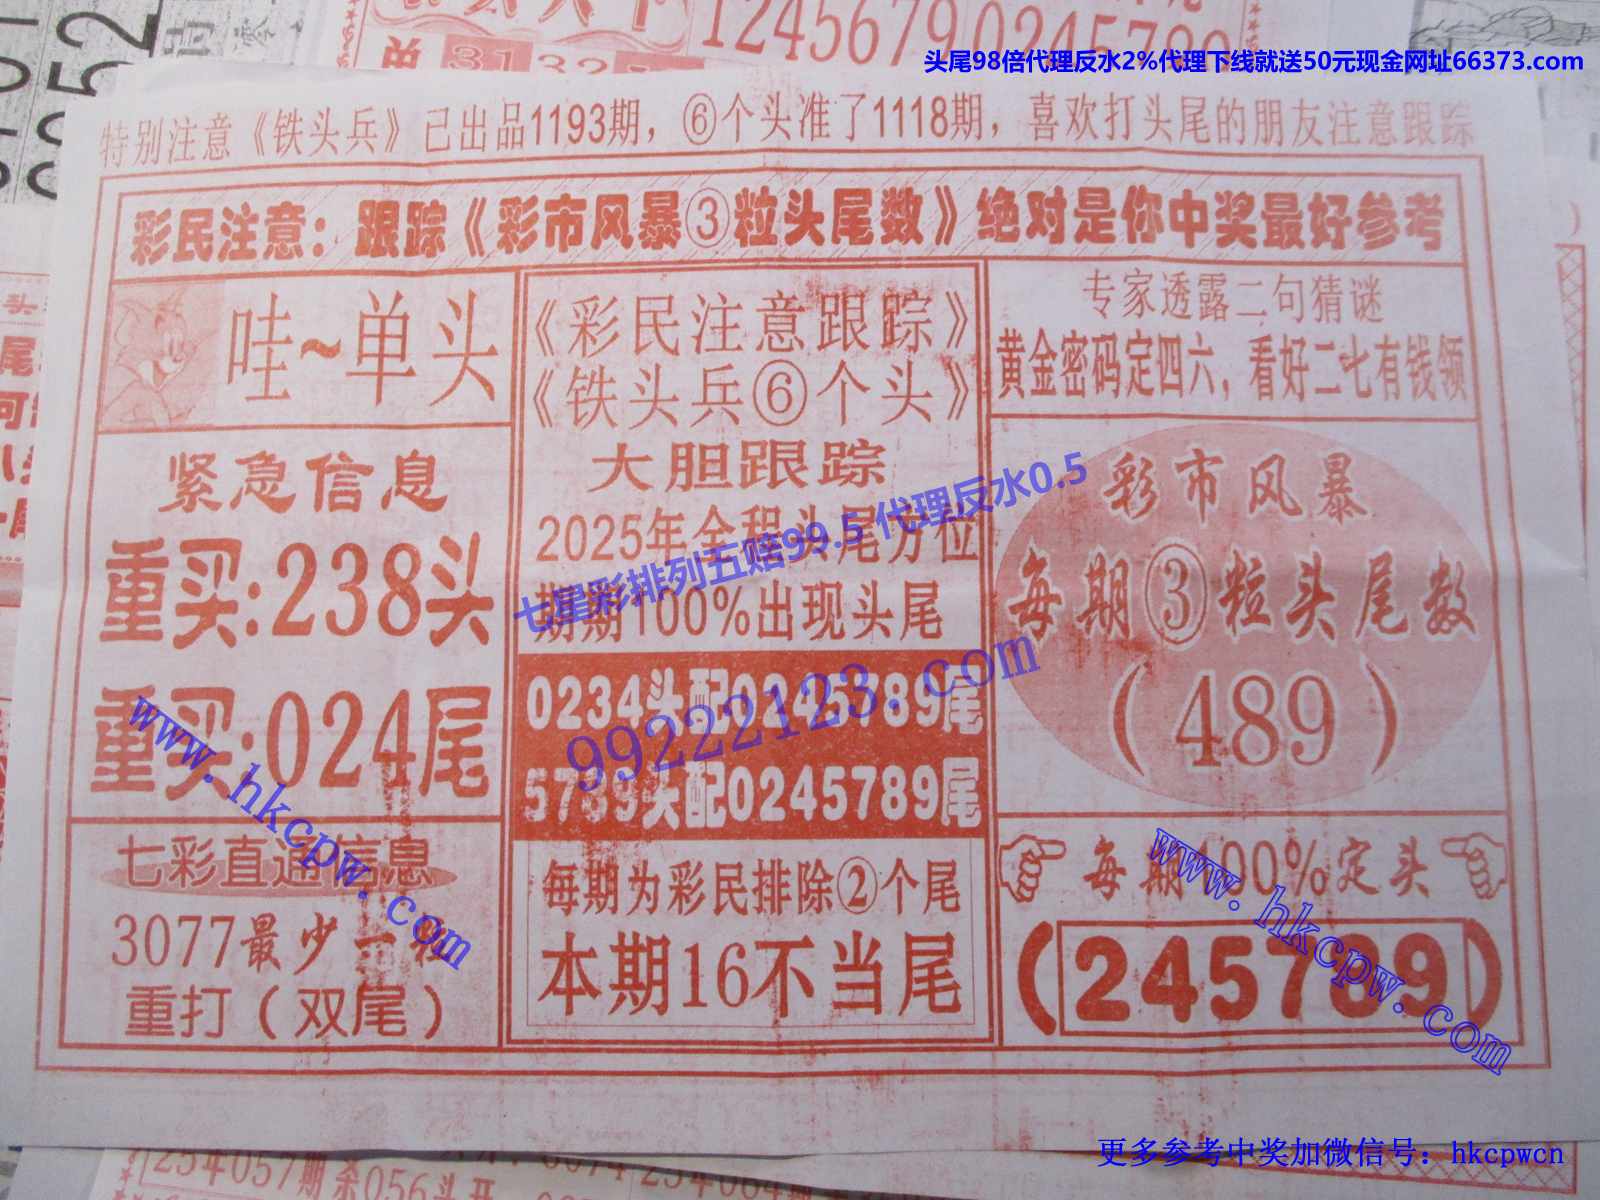 1245679 0245789
头尾98倍代理反水2%代理下线就送50元现金网址66373.com
特别注意《铁头兵》已出品1193期，⑥个头准了1118期，喜欢打头尾的朋友注意跟踪
彩民注意：跟踪《彩市风暴③粒头尾数》绝对是你中奖最好参考
哇~单头
紧急信息
重买:238头
重买:024尾
七彩直通信息
3077最少一粒
重打（双尾）
《彩民注意跟踪》
《铁头兵⑥个头》
大胆跟踪
2025年全程头尾方位
期期100%出现头尾
0234头配0245789尾
5789头配0245789尾
每期为彩民排除②个尾
本期16不当尾
专家透露二句猜谜
黄金密码定四六，看好二七有钱领
彩市风暴
每期③粒头尾数
（489）
每期100%定头
（245789）
七星彩排列五赔99.5 代理反水0.5
99222123.com
www.hkcpw.com
www.hkcpw.com
更多参考中奖加微信号：hkcpwcn
25年057期杀056头开